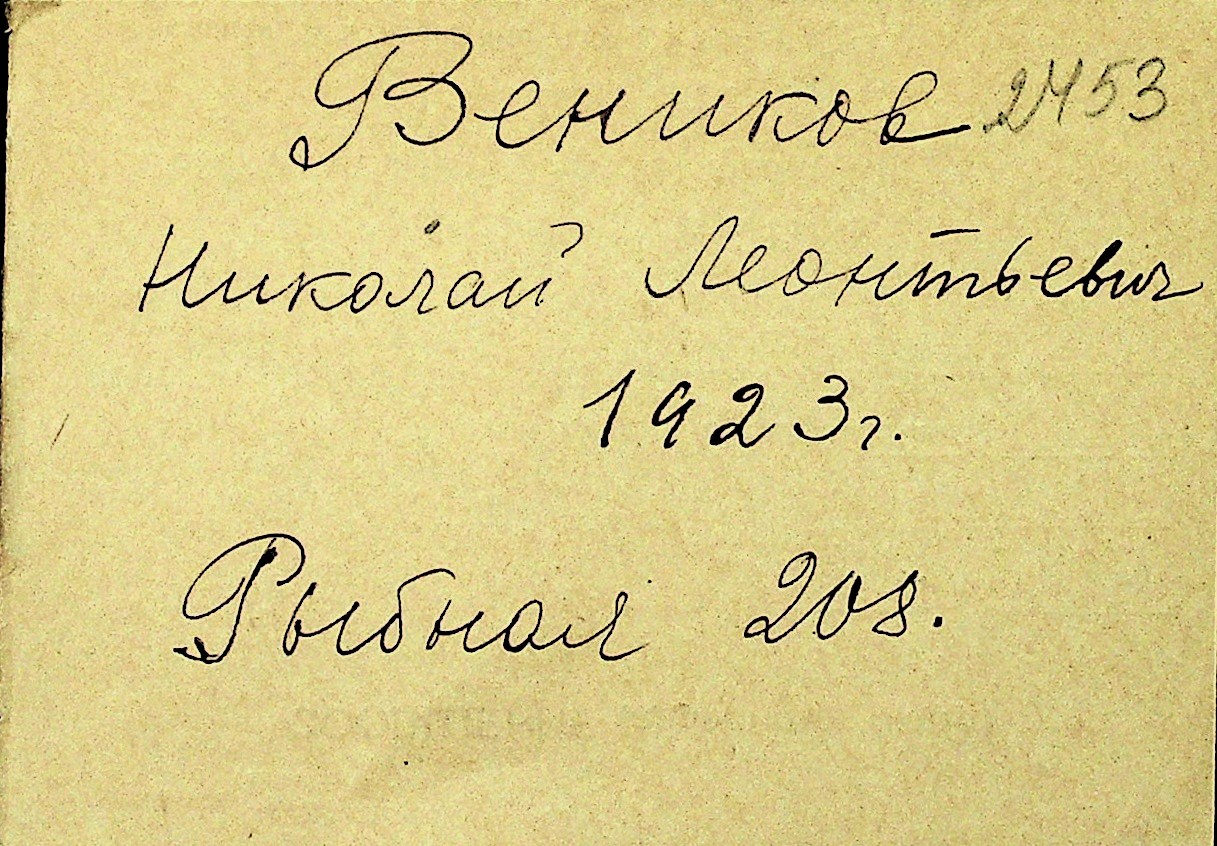 Веников 2453
Николай Леонтьевич
1923г.
Рыбная 208.